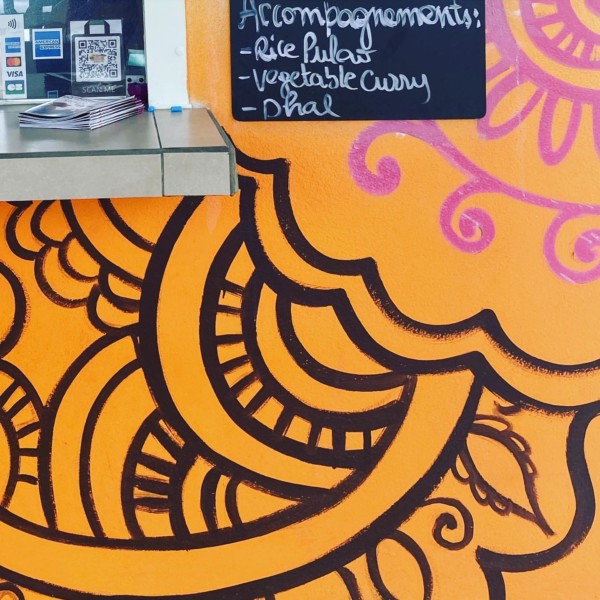 Accompagnements:
- Rice Pulao
- Vegetable Curry
- Dhal
AMERICAN EXPRESS
VISA
SCAN ME